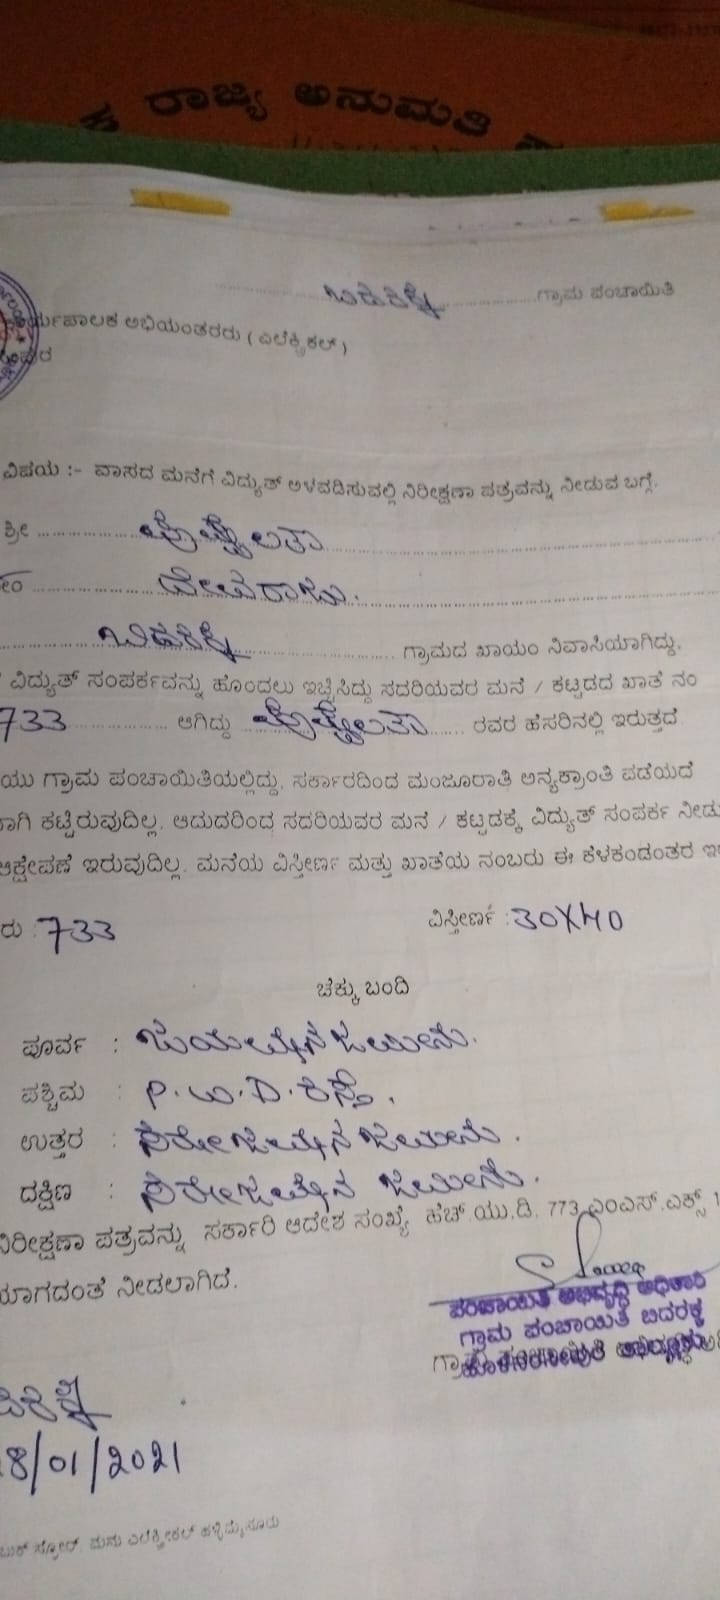 ರಾಜ್ಯ ಅನುಮತಿ
ಬಿದರಕ್ಕೆ ಗ್ರಾಮ ಪಂಚಾಯಿತಿ
ರ್ಯಪಾಲಕ ಅಭಿಯಂತರರು ( ಎಲೆಕ್ಟ್ರಿಕಲ್ )
ವಿಷಯ :- ವಾಸದ ಮನೆಗೆ ವಿದ್ಯುತ್ ಅಳವಡಿಸುವಲ್ಲಿ ನಿರೀಕ್ಷಣಾ ಪತ್ರವನ್ನು ನೀಡುವ ಬಗ್ಗೆ.
ಶ್ರೀ ಪುಷ್ಪಲತಾ
ದೇವರಾಜು.
ಬಿದರಕ್ಕೆ ಗ್ರಾಮದ ಖಾಯಂ ನಿವಾಸಿಯಾಗಿದ್ದು,
ವಿದ್ಯುತ್ ಸಂಪರ್ಕವನ್ನು ಹೊಂದಲು ಇಚ್ಚಿಸಿದ್ದು ಸದರಿಯವರ ಮನೆ / ಕಟ್ಟಡದ ಖಾತೆ ನಂ
733 ಆಗಿದ್ದು ಪುಷ್ಪಲತಾ ರವರ ಹೆಸರಿನಲ್ಲಿ ಇರುತ್ತದೆ.
ಯು ಗ್ರಾಮ ಪಂಚಾಯಿತಿಯಲ್ಲಿದ್ದು, ಸರ್ಕಾರದಿಂದ ಮಂಜೂರಾತಿ ಅನ್ಯಕ್ರಾಂತಿ ಪಡೆಯದೆ
ರಾಗಿ ಕಟ್ಟಿರುವುದಿಲ್ಲ. ಆದುದರಿಂದ ಸದರಿಯವರ ಮನೆ / ಕಟ್ಟಡಕ್ಕೆ ವಿದ್ಯುತ್ ಸಂಪರ್ಕ ನೀಡು
ಆಕ್ಷೇಪಣೆ ಇರುವುದಿಲ್ಲ. ಮನೆಯ ವಿಸ್ತೀರ್ಣ ಮತ್ತು ಖಾತೆಯ ನಂಬರು ಈ ಕೆಳಕಂಡಂತರ ಇ
ರು : 733 ವಿಸ್ತೀರ್ಣ : 30X40
ಚಕ್ಕು ಬಂದಿ
ಪೂರ್ವ : ಜಮೀನು.
ಪಶ್ಚಿಮ : P.W.D. ರಸ್ತೆ.
ಉತ್ತರ : ಜಮೀನು.
ದಕ್ಷಿಣ : ಜಮೀನು.
ನಿರೀಕ್ಷಣಾ ಪತ್ರವನ್ನು ಸರ್ಕಾರಿ ಆದೇಶ ಸಂಖ್ಯೆ ಹೆಚ್.ಯು.ಡಿ. 773 ಎಂಎಸ್.ಎಕ್ಸ್ 1
ಯಾಗದಂತೆ ನೀಡಲಾಗಿದೆ.
ಪಂಚಾಯಿತಿ ಅಭಿವೃದ್ಧಿ ಅಧಿಕಾರಿ
ಗ್ರಾಮ ಪಂಚಾಯಿತಿ ಬಿದರಕ್ಕೆ
8/01/2021